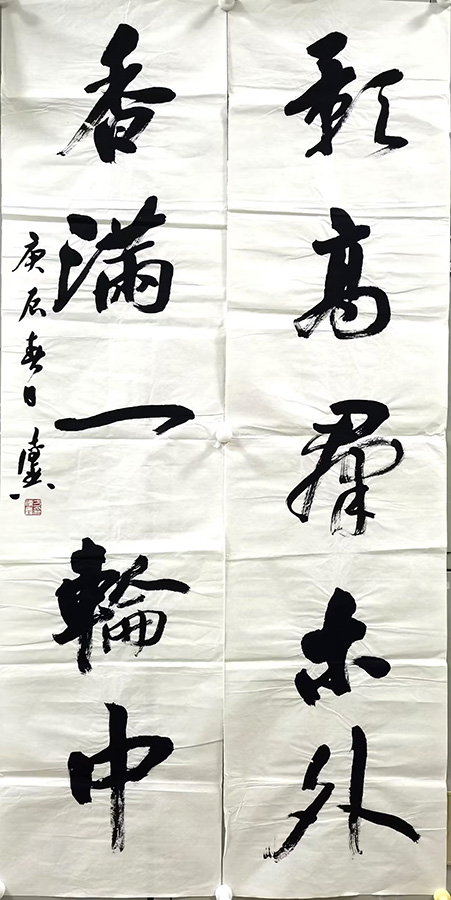 影高羣木外
香滿一輪中
庚辰春日